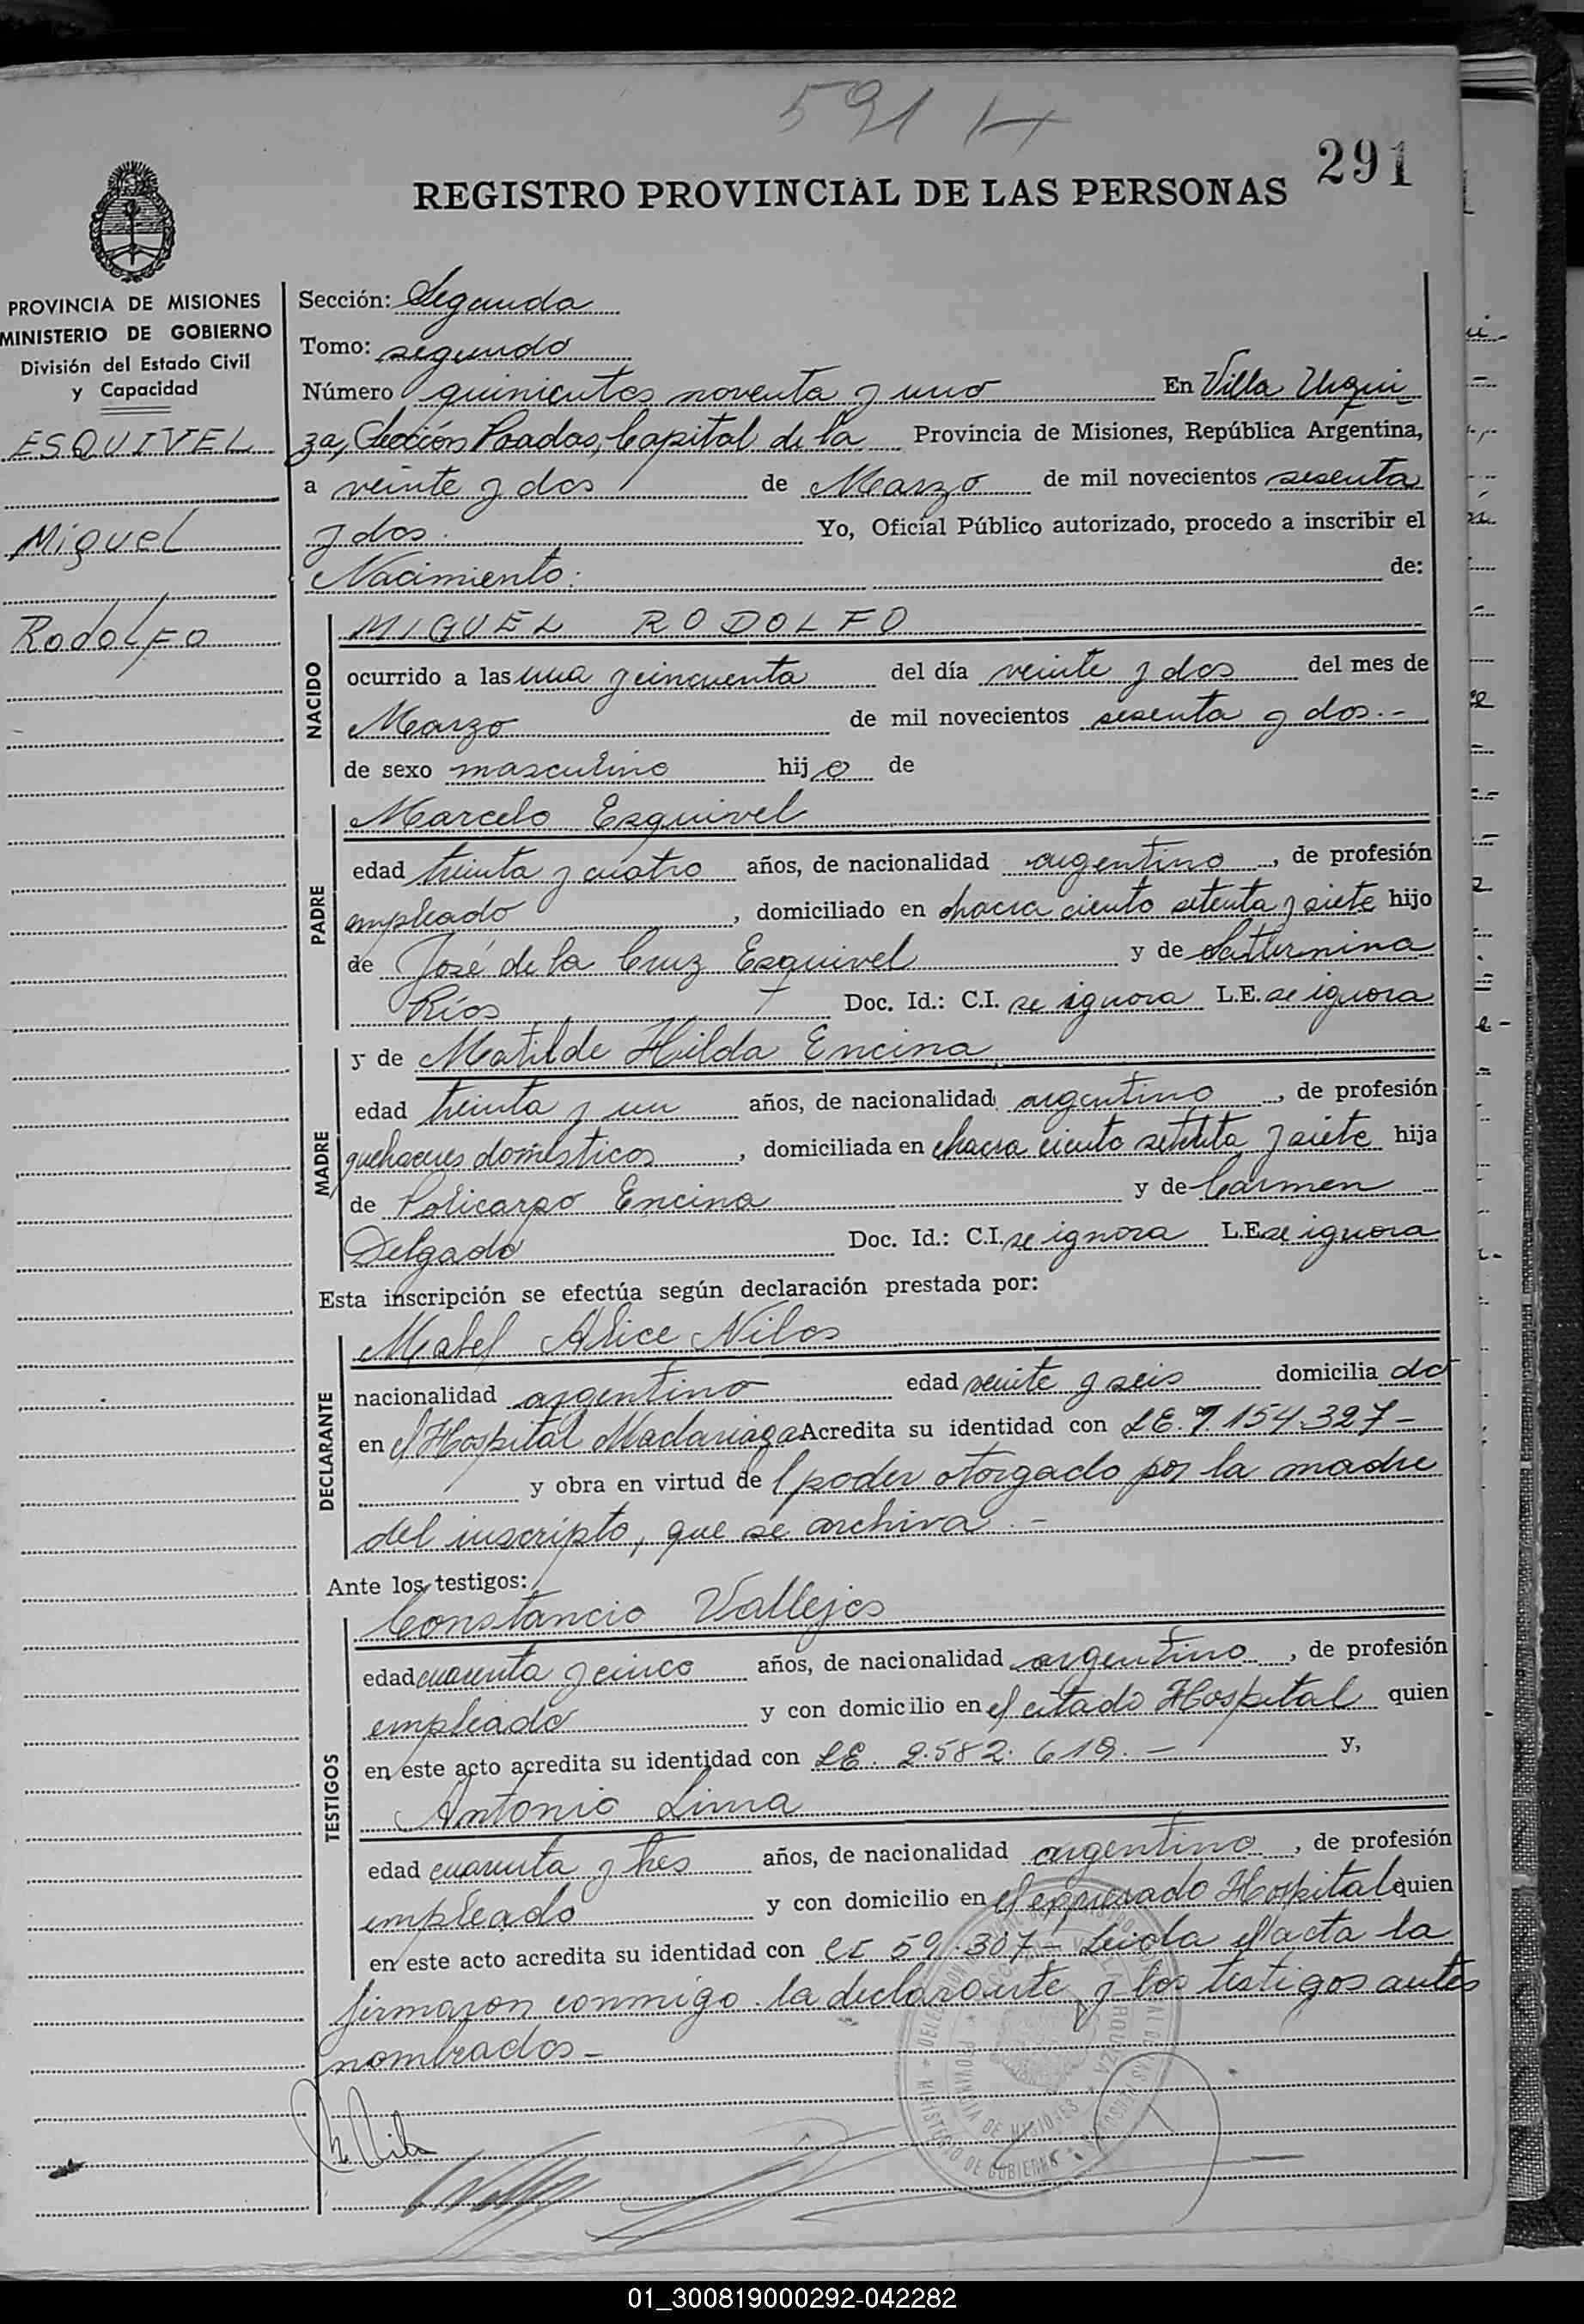 591
291
REGISTRO PROVINCIAL DE LAS PERSONAS
PROVINCIA DE MISIONES
MINISTERIO DE GOBIERNO
División del Estado Civil
y Capacidad
ESQUIVEL
Miguel
Rodolfo
Sección: Segunda
Tomo: segundo
Número quinientos noventa y uno En Villa Urqui-
za, Sección Posadas, Capital de la Provincia de Misiones, República Argentina,
a veinte y dos de Marzo de mil novecientos sesenta
y dos. Yo, Oficial Público autorizado, procedo a inscribir el
Nacimiento: de:
NACIDO
MIGUEL RODOLFO
ocurrido a las una y cincuenta del día veinte y dos del mes de
Marzo de mil novecientos sesenta y dos.-
de sexo masculino hijo de
PADRE
Marcelo Esquivel
edad treinta y cuatro años, de nacionalidad argentino, de profesión
empleado, domiciliado en chacra ciento setenta y siete hijo
de José de la Cruz Esquivel y de Saturnina
Ríos Doc. Id.: C.I. se ignora L.E. se ignora
MADRE
y de Matilde Hilda Encina
edad treinta y un años, de nacionalidad argentino, de profesión
quehaceres domésticos, domiciliada en chacra ciento setenta y siete hija
de Policarpo Encina y de Carmen
Delgado Doc. Id.: C.I. se ignora L.E. se ignora
Esta inscripción se efectúa según declaración prestada por:
DECLARANTE
Mabel Alice Nilos
nacionalidad argentino edad veinte y seis domicilia do
en el Hospital Madariaga Acredita su identidad con LE. 7.154.327-
y obra en virtud del poder otorgado por la madre
del inscripto, que se archiva.-
Ante los testigos:
TESTIGOS
Constancio Vallejos
edad cuarenta y cinco años, de nacionalidad argentino, de profesión
empleado y con domicilio en el citado Hospital quien
en este acto acredita su identidad con LE. 2.582.618.- y,
Antonio Lima
edad cuarenta y tres años, de nacionalidad argentino, de profesión
empleado y con domicilio en el expresado Hospital quien
en este acto acredita su identidad con CI 59.307- Leída el acta la
firmaron conmigo la declarante y los testigos antes
nombrados-
01_300819000292-042282